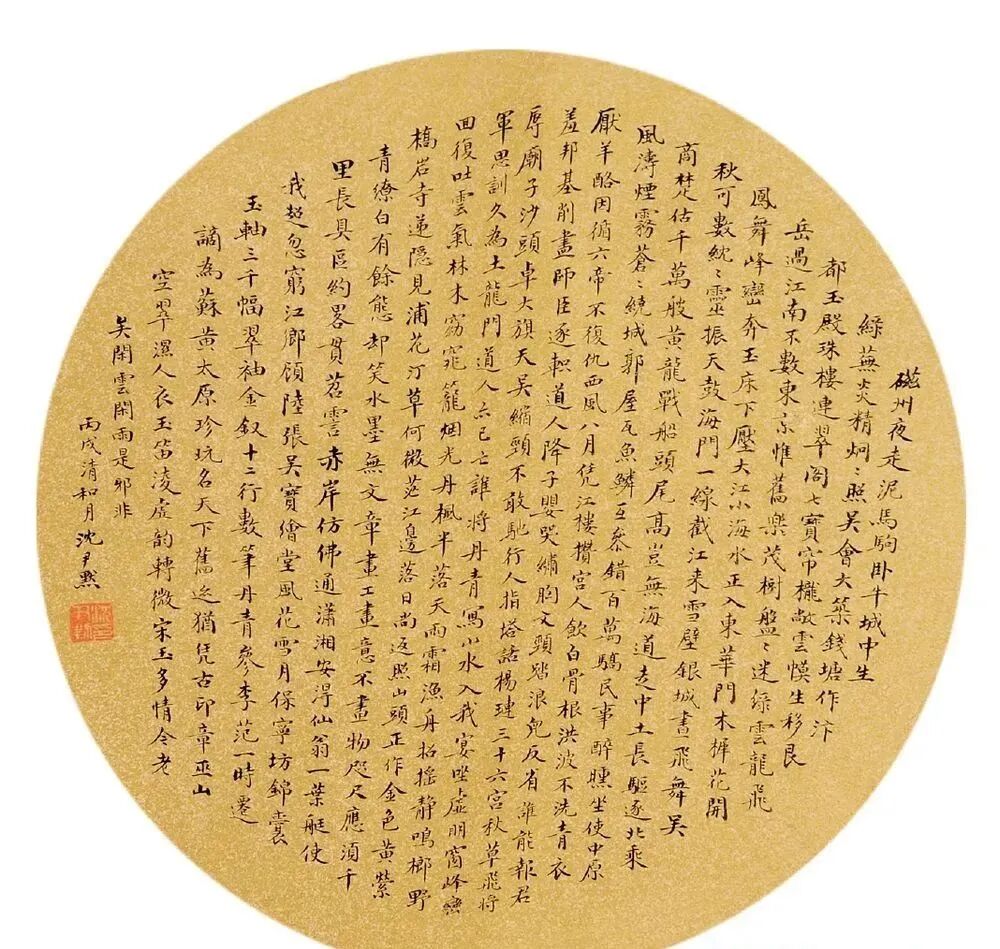 磁州夜走泥馬駒卧牛城中生
綠蕪炎精炯〻照吳會大築錢塘作汴
都玉殿珠樓連翠閣七寶帘櫳敞雲幙生移艮
岳過江南不數東京惟舊樂茂樹盤〻迷綠雲龍飛
鳳舞峰巒奔玉床下壓大江小海水正入東華門木樨花開
秋可數紞〻靈振天鼓海門一線截江来雪壁銀城晝飛舞吳
商楚估千萬艘黃龍戰船頭尾高豈無海道走中土長驅逐北乘
風濤煙霧蒼〻繞城郭屋瓦魚鱗互參錯百萬驕民事醉醺坐使中原
厭羊酪因循六帝不復仇西風八月凭江樓攢宮人飲白骨根洪波不洗青衣
羞邦基削盡師臣逐軹道人降子嬰哭繡胸文頸踏浪兒反省誰能報君
辱廟子沙頭卓大旗天吳縮頸不敢馳行人指塔話楊璉三十六宮秋草飛將
軍思訓久為土龍門道人亦已亡誰將丹青寫山水入我宴坐虛明窗峰巒
回復吐雲氣林木窈窕籠烟光丹楓半落天雨霜漁舟招搖靜鳴榔野
橋岩寺遞隱見浦花汀草何微茫江邊落日尚返照山頭正作金色黃縈
青繚白有餘態却笑水墨無文章畫工畫意不畫物咫尺應須千
里長具區約畧貫苕霅赤岸仿佛通瀟湘安得仙翁一葉艇使
我超忽窮江鄉顧陸張吳寶繪堂風花雪月保寧坊錦囊
玉軸三千幅翠袖金釵十二行數筆丹青參李范一時遷
謫為蘇黃太原珍玩名天下舊迹猶凭古印章巫山
空翠濕人衣玉笛淩虛韵轉微宋玉多情今老
矣閑雲閑雨是邪非
丙戌清和月沈尹默